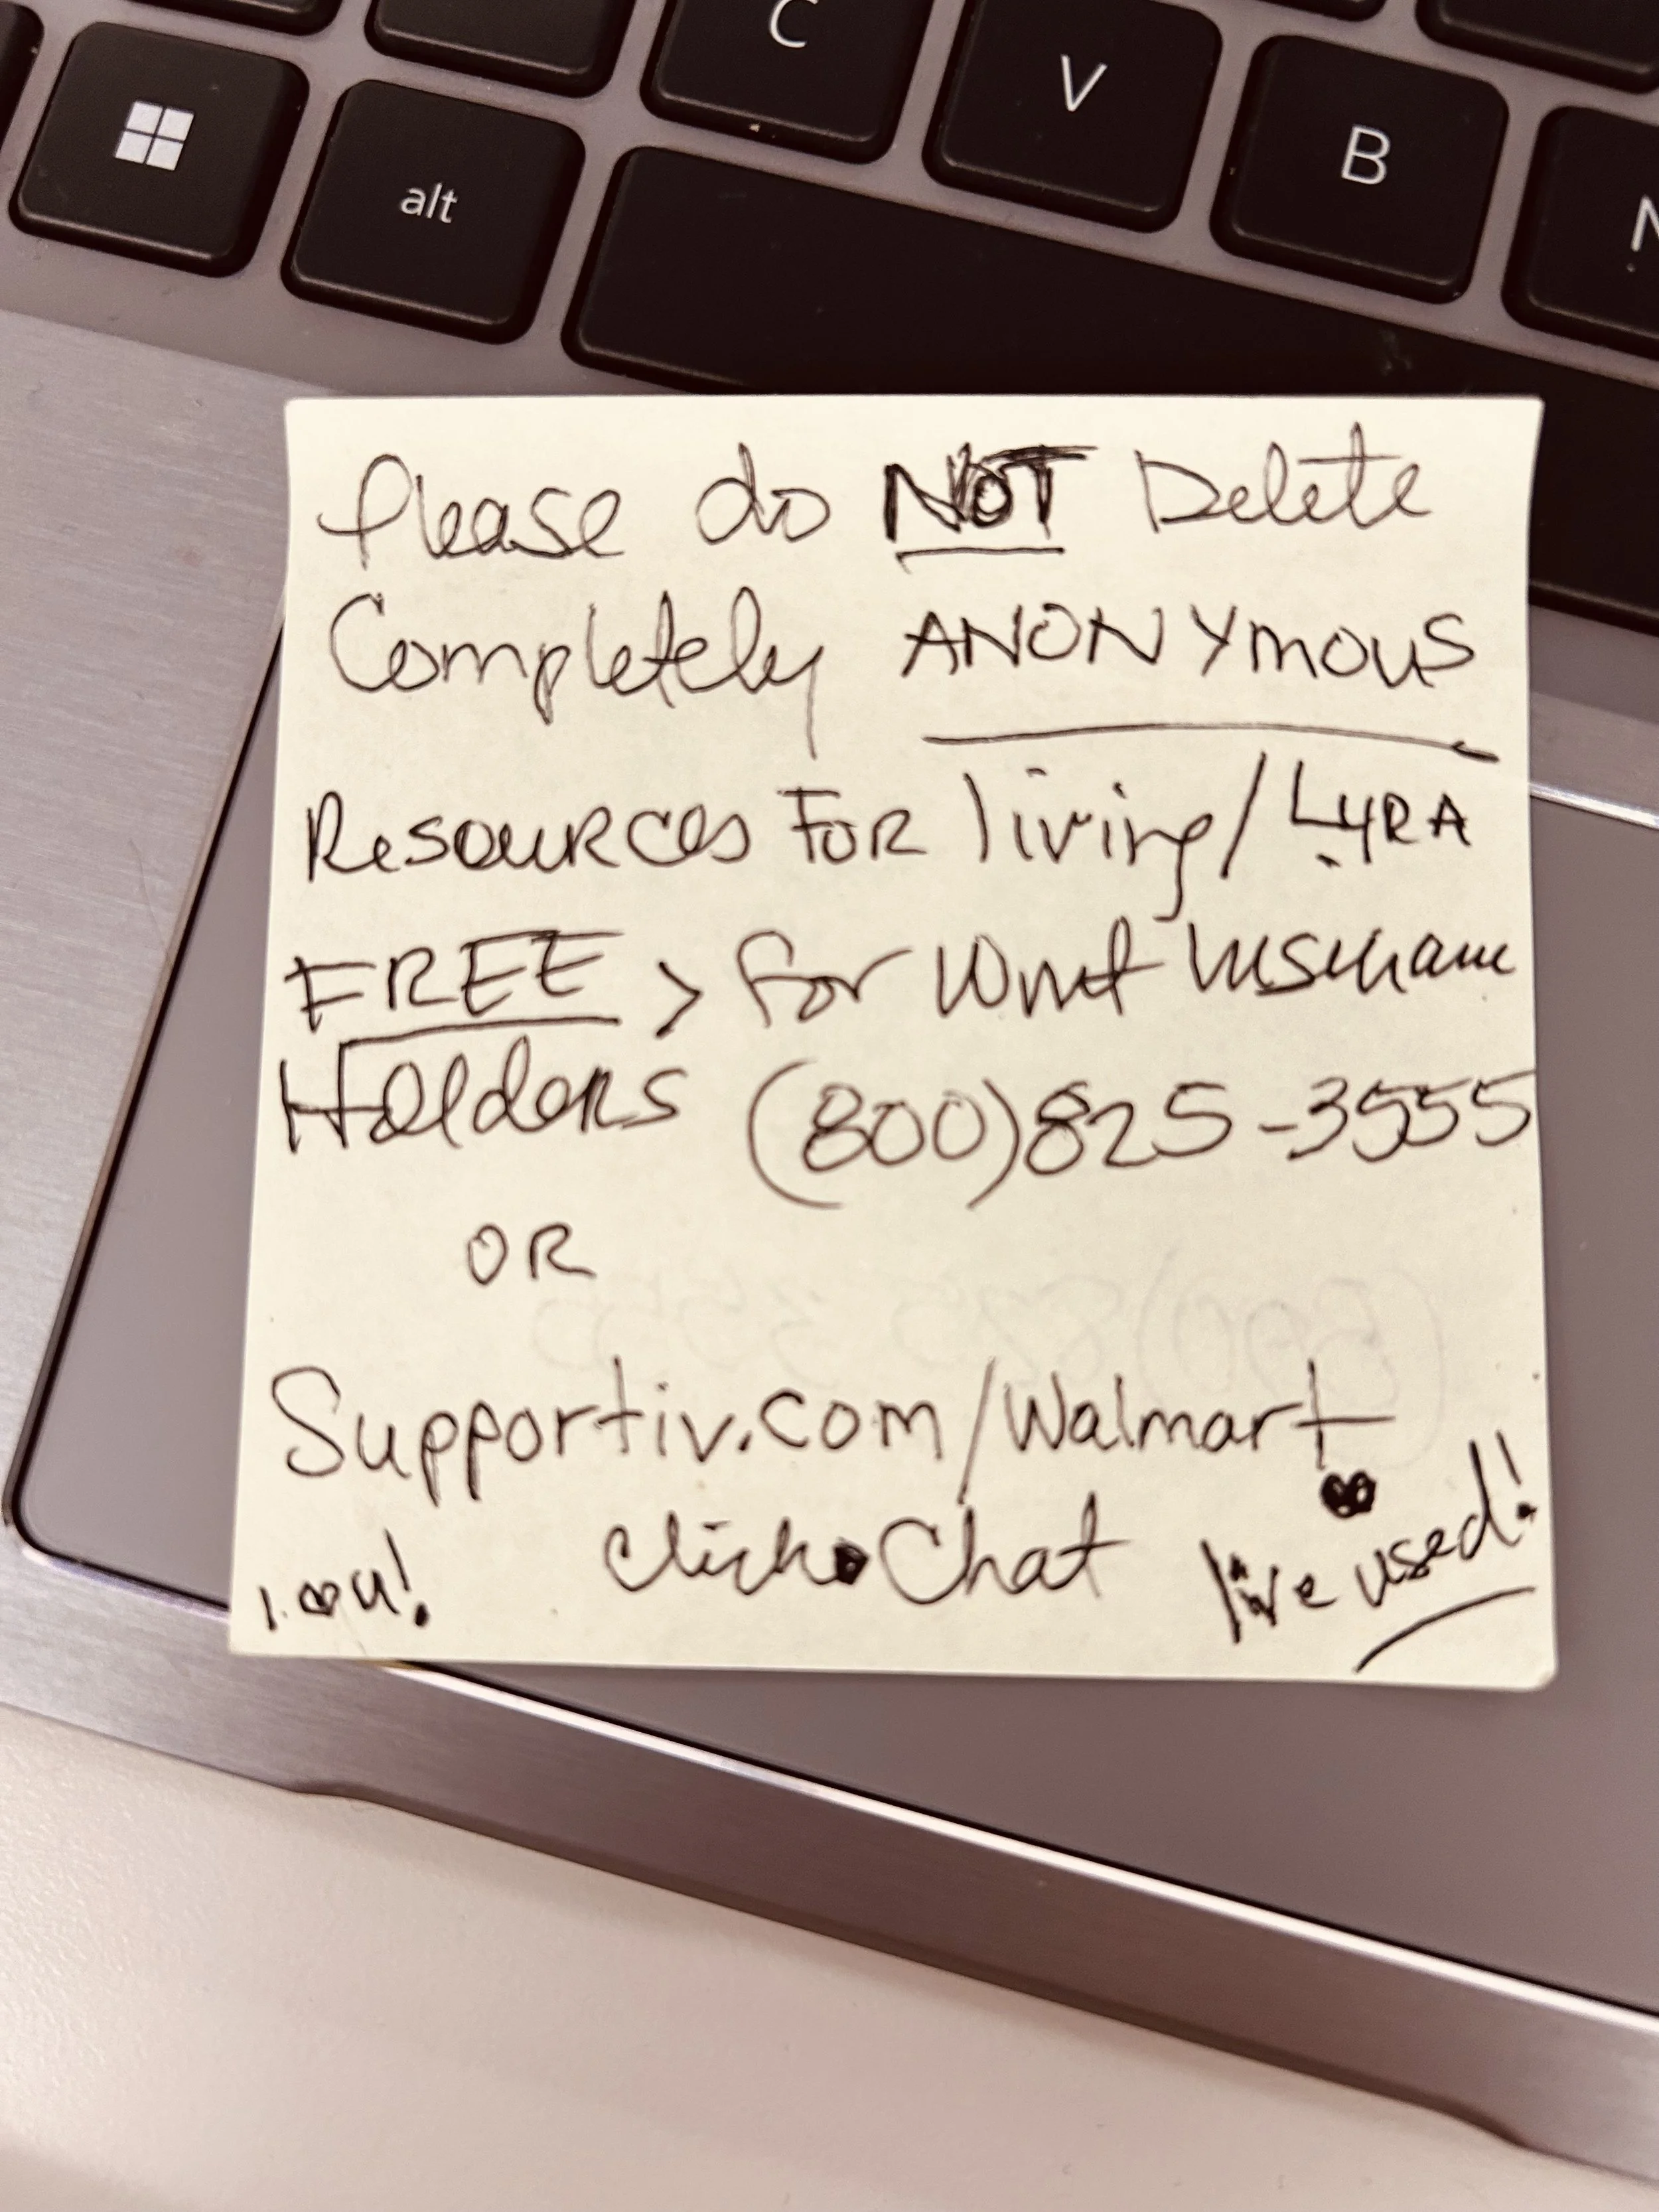 C
V
B
N
alt
Please do NOT Delete
Completely ANONYmous
Resources For living/LYRA
FREE > for Wmt Insurance
Holders (800)825-3555
OR
(800)825 3555
Supportiv.com/Walmart
click Chat
I ♥ u!
I've used!